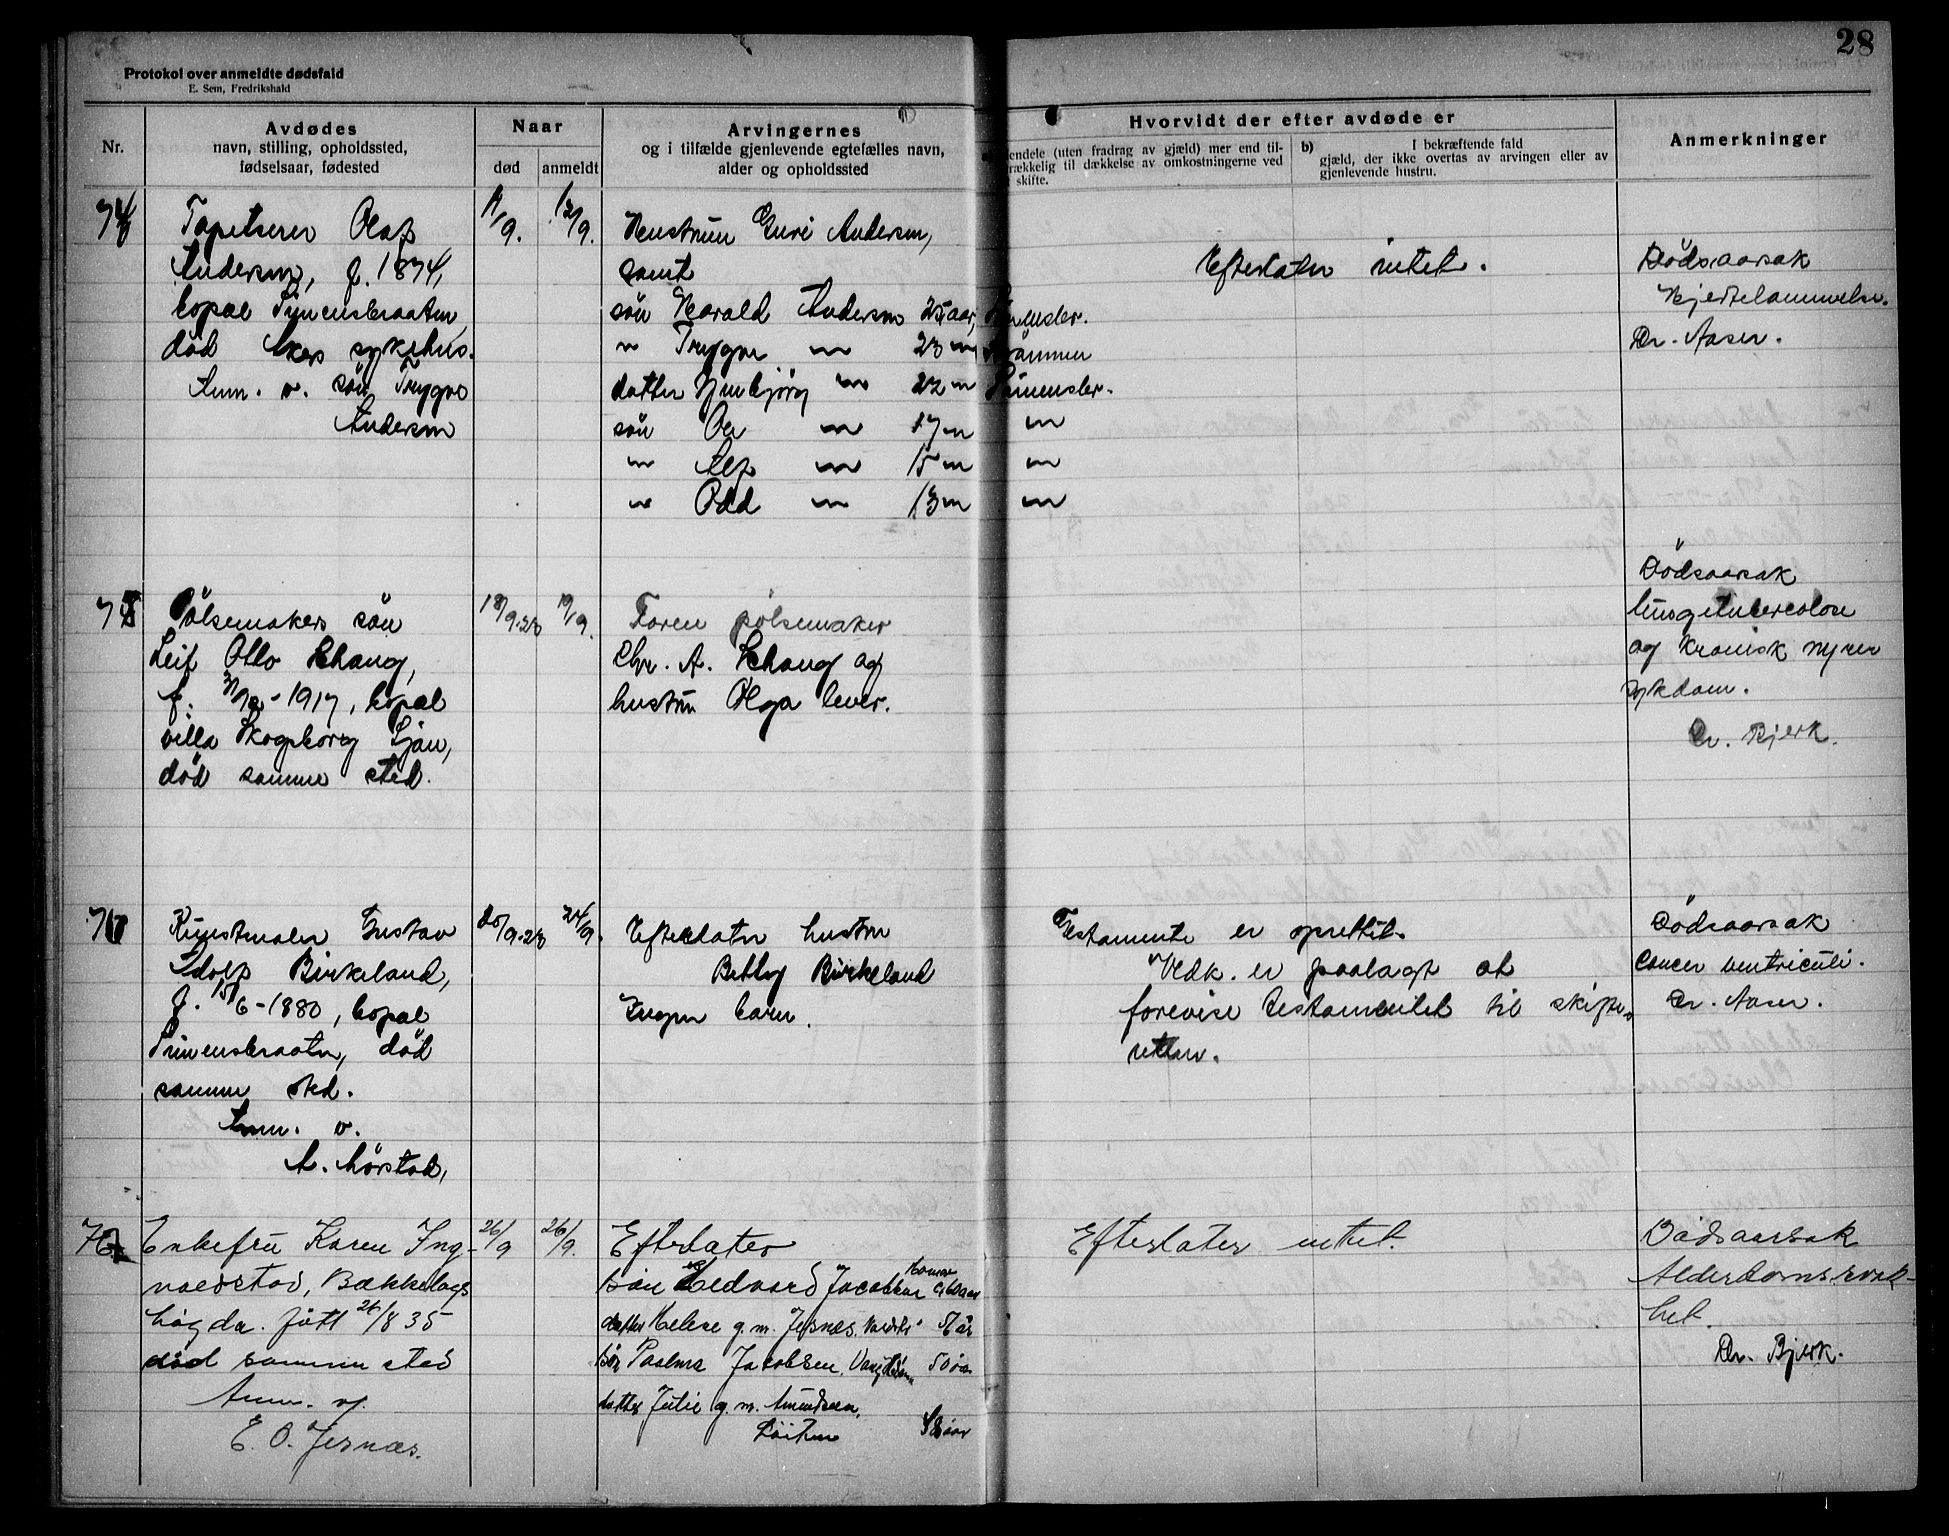 28
Protokol over anmeldte dødsfald
E. Sem, Fredrikshald
Nr.
Avdødes
navn, stilling, opholdssted,
fødselsaar, fødested
Naar
død
anmeldt
Arvingernes
og i tilfælde gjenlevende egtefælles navn,
alder og opholdssted
Hvorvidt der efter avdøde er
endele (uten fradrag av gjæld) mer end til-
rækkelig til dækkelse av omkostningerne ved
skifte.
b)
I bekræftende fald
gjæld, der ikke overtas av arvingen eller av
gjenlevende hustru.
Anmerkninger
74
Tapetserer Olaf
Andersen, f. 1874,
bopæl Simensbraaten,
død Akers sykehus.
Anm. v. søn Trygve
Andersen
11/9.
12/9.
Hustruen Guri Andersen,
samt
søn Harald Andersen 25 aar, Simensbr.
" Trygve " 23 "
datter " 22 " Simensbr.
søn " 17 " "
" Alf " 15 " "
" Odd " 13 " "
Efterlater intet.
Dødsaarsak
Hjertelammelse.
Dr. Aaser.
75
Pølsemakers søn
Leif Otto Schang,
1917, bopæl
villa Skogsborg Ljan,
død samme sted.
18/9.23
19/9.
Foreld pølsemaker
Chr. A. Schang og
hustru Olga lever.
Dødsaarsak
lungetuberculose
og kronisk nyre
sykdom.
Dr. Bjerk.
76
Kunstmaler Gustav
Adolf Birkeland,
f. 15/6-1880, bopæl
Simensbraaten, død
samme sted.
Anm. v.
A. Mørstad,
20/9.23
24/9.
Efterlater hustru
Betty Birkeland
Ingen barn.
Testamente er oprettet.
Vedk. er paalagt at
forevise testamentet til skifte-
retten.
Dødsaarsak
Cancer ventriculi.
Dr. Aaser.
Enkefru Karen Ing-
valdstad, Bækkelags
høgda. født 26/8 35
død samme sted
Anm. af
E. O. Jesnæs.
26/9
26/9.
Efterlater
søn Edvard Jacobsen Hamar
datter Helene g. m. Jesnæs.
søn Paalma Jacobsen, 50 aar
datter Julie g. m. Amundsen,
Løiten
Efterlater intet.
Dødsaarsak
Alderdomssvak-
het.
Dr. Bjerk.